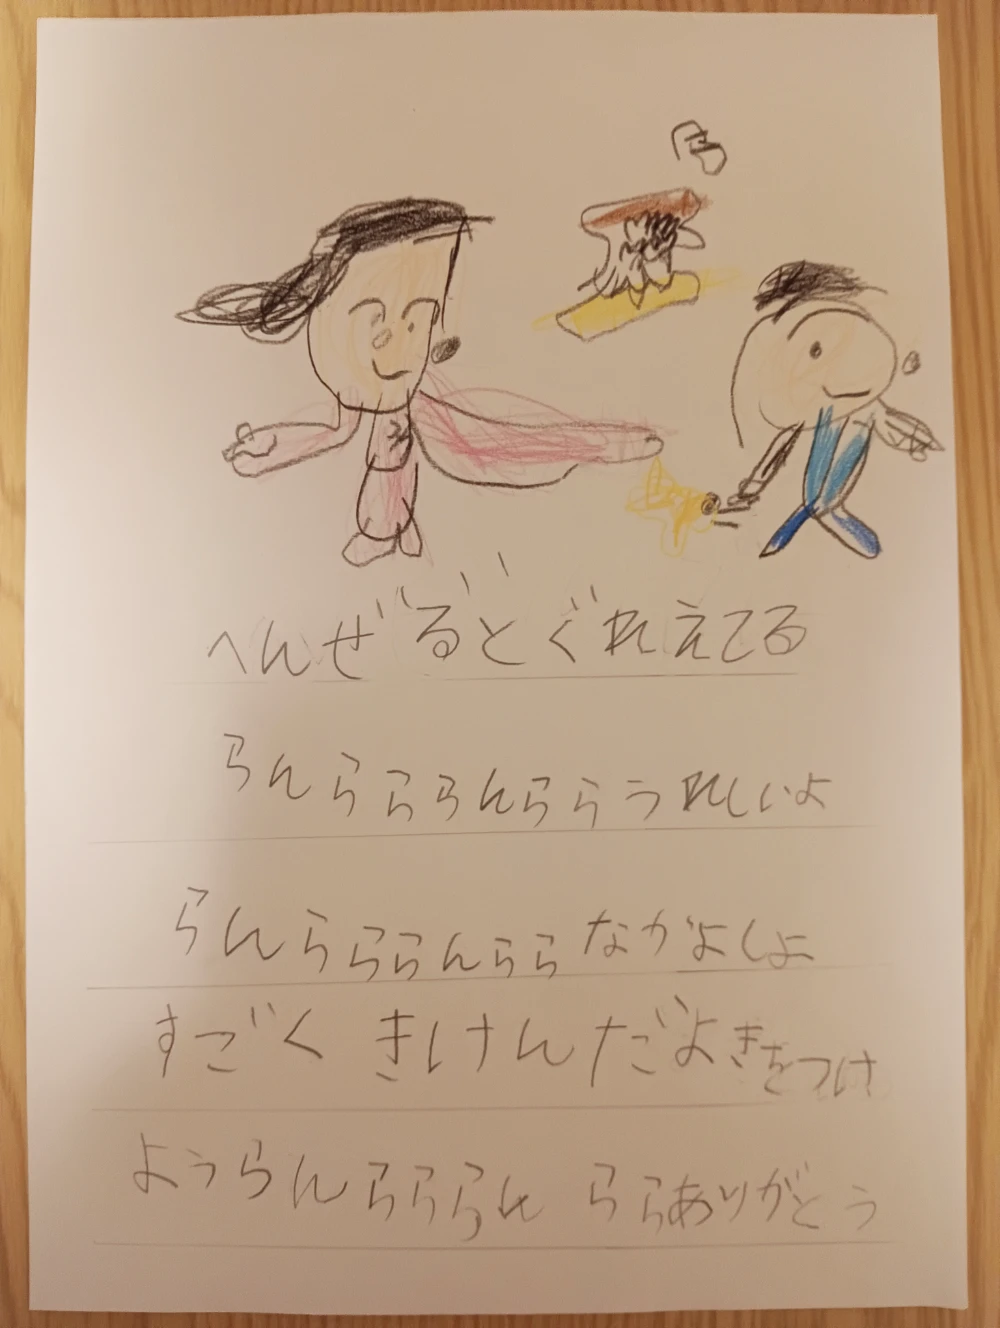 へんぜるどぐれえてる
らんらららんららうれしいよ
らんらららんららなかよしよ
すごくきけんだよきをつけ
ようらんらららんららありがとう